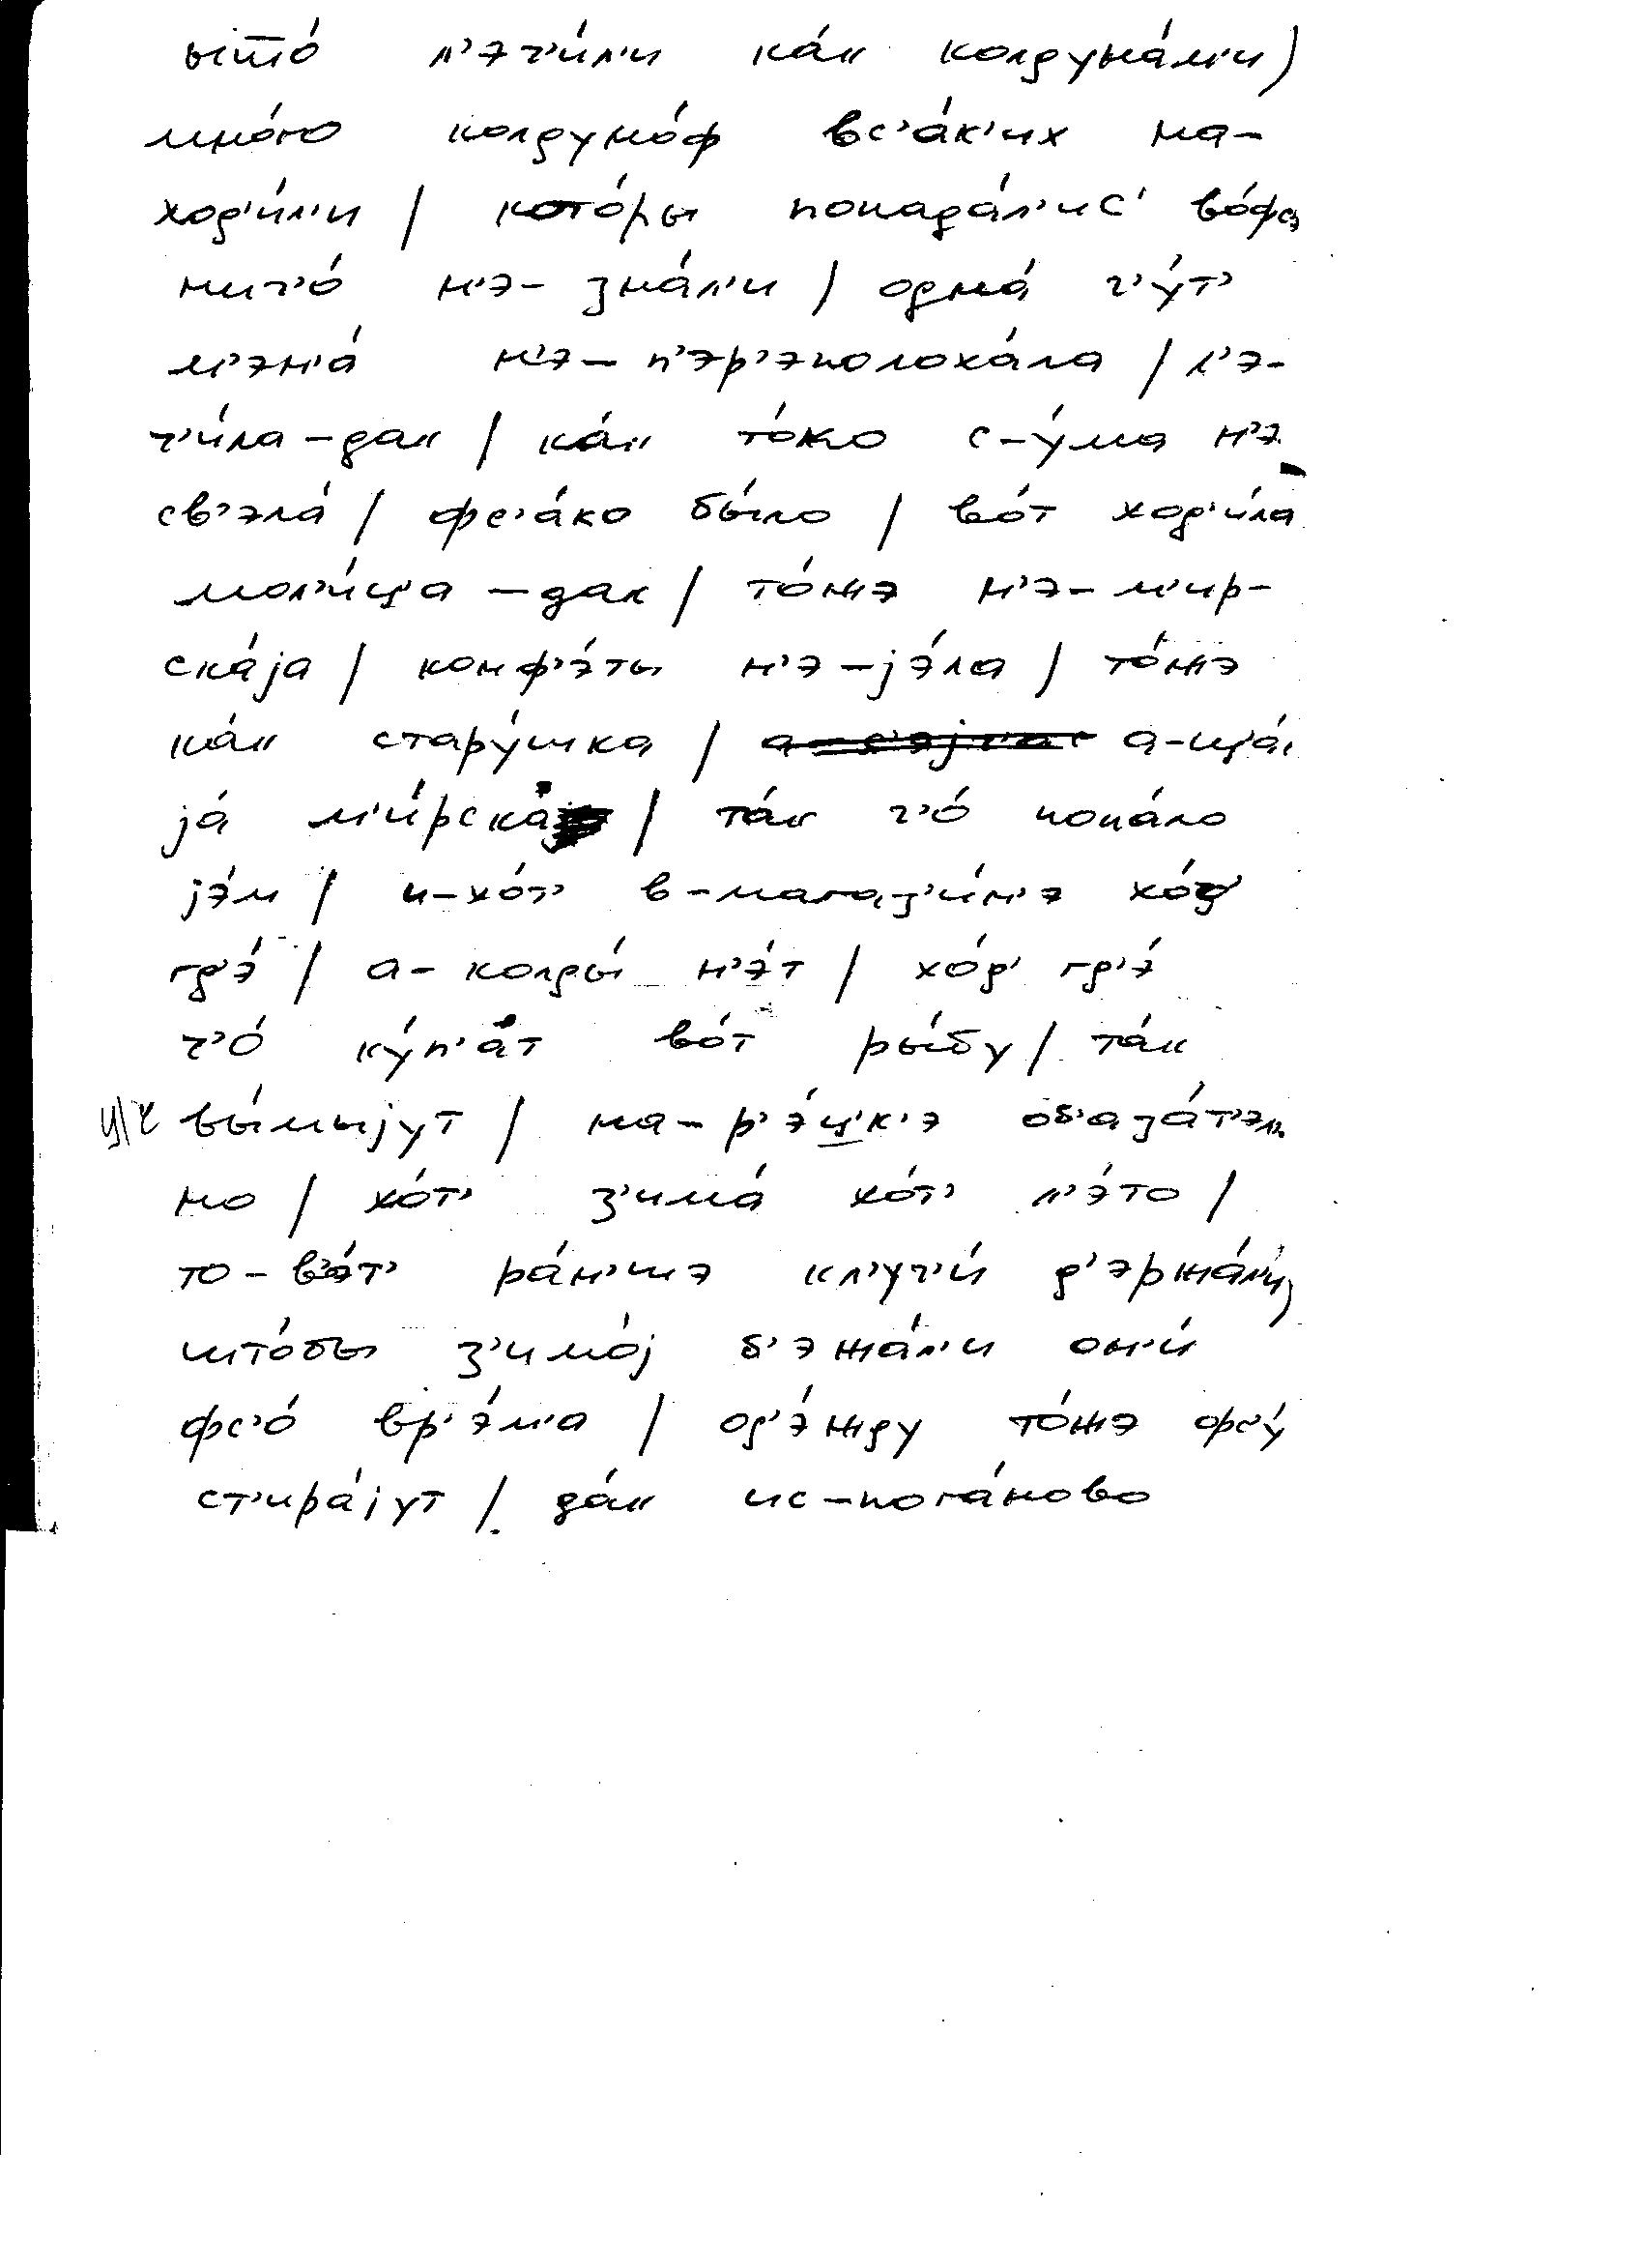 ыто́ л'эч'и́л'и ка́к колдуна́м'и)
мно́го колдуно́ф вс'а́к'их на-
ход'и́л'и / кото́ры попада́л'ис' во́фс'э
нич'о́ н'э- зна́л'и / одна́ ч'у́т'
м'эн'а́ н'э- п'эр'эполоха́ла / л'э-
ч'и́ла-дак / ка́к то́ко с-у́ма н'э
св'эла́ / фс'а́ко бы́ло / во́т ход'и́ла
мол'и́ц'а -дак / то́жэ н'э- м'ир-
ска́jа / конф'э́ты н'э -jэ́ла / то́жэ
ка́к стару́шка / а-щ'а́с
jа́ м'и́рска / та́к ч'о́ попа́ло
jэ́м / и-хо́т' в-магаз'и́н'э хо́д'
гд'э́ / а- колды́ н'э́т / хо́д' гд'э́
ч'о́ ку́п'ат во́т ры́бу / та́к
ц/ч вы́мыjут / на- р'э́ц'к'э об'аза́т'эл'-
но / хо́т' з'има́ хо́т' л'э́то /
то- в'э́т' ра́н'шэ кл'уч'и́ д'эржа́л'и,
што́бы з'имо́j б'эжа́л'и он'и́
фс'о́ вр'э́м'а / од'э́жду то́жэ фс'у́
ст'ира́jут / да́к ис-пога́ново